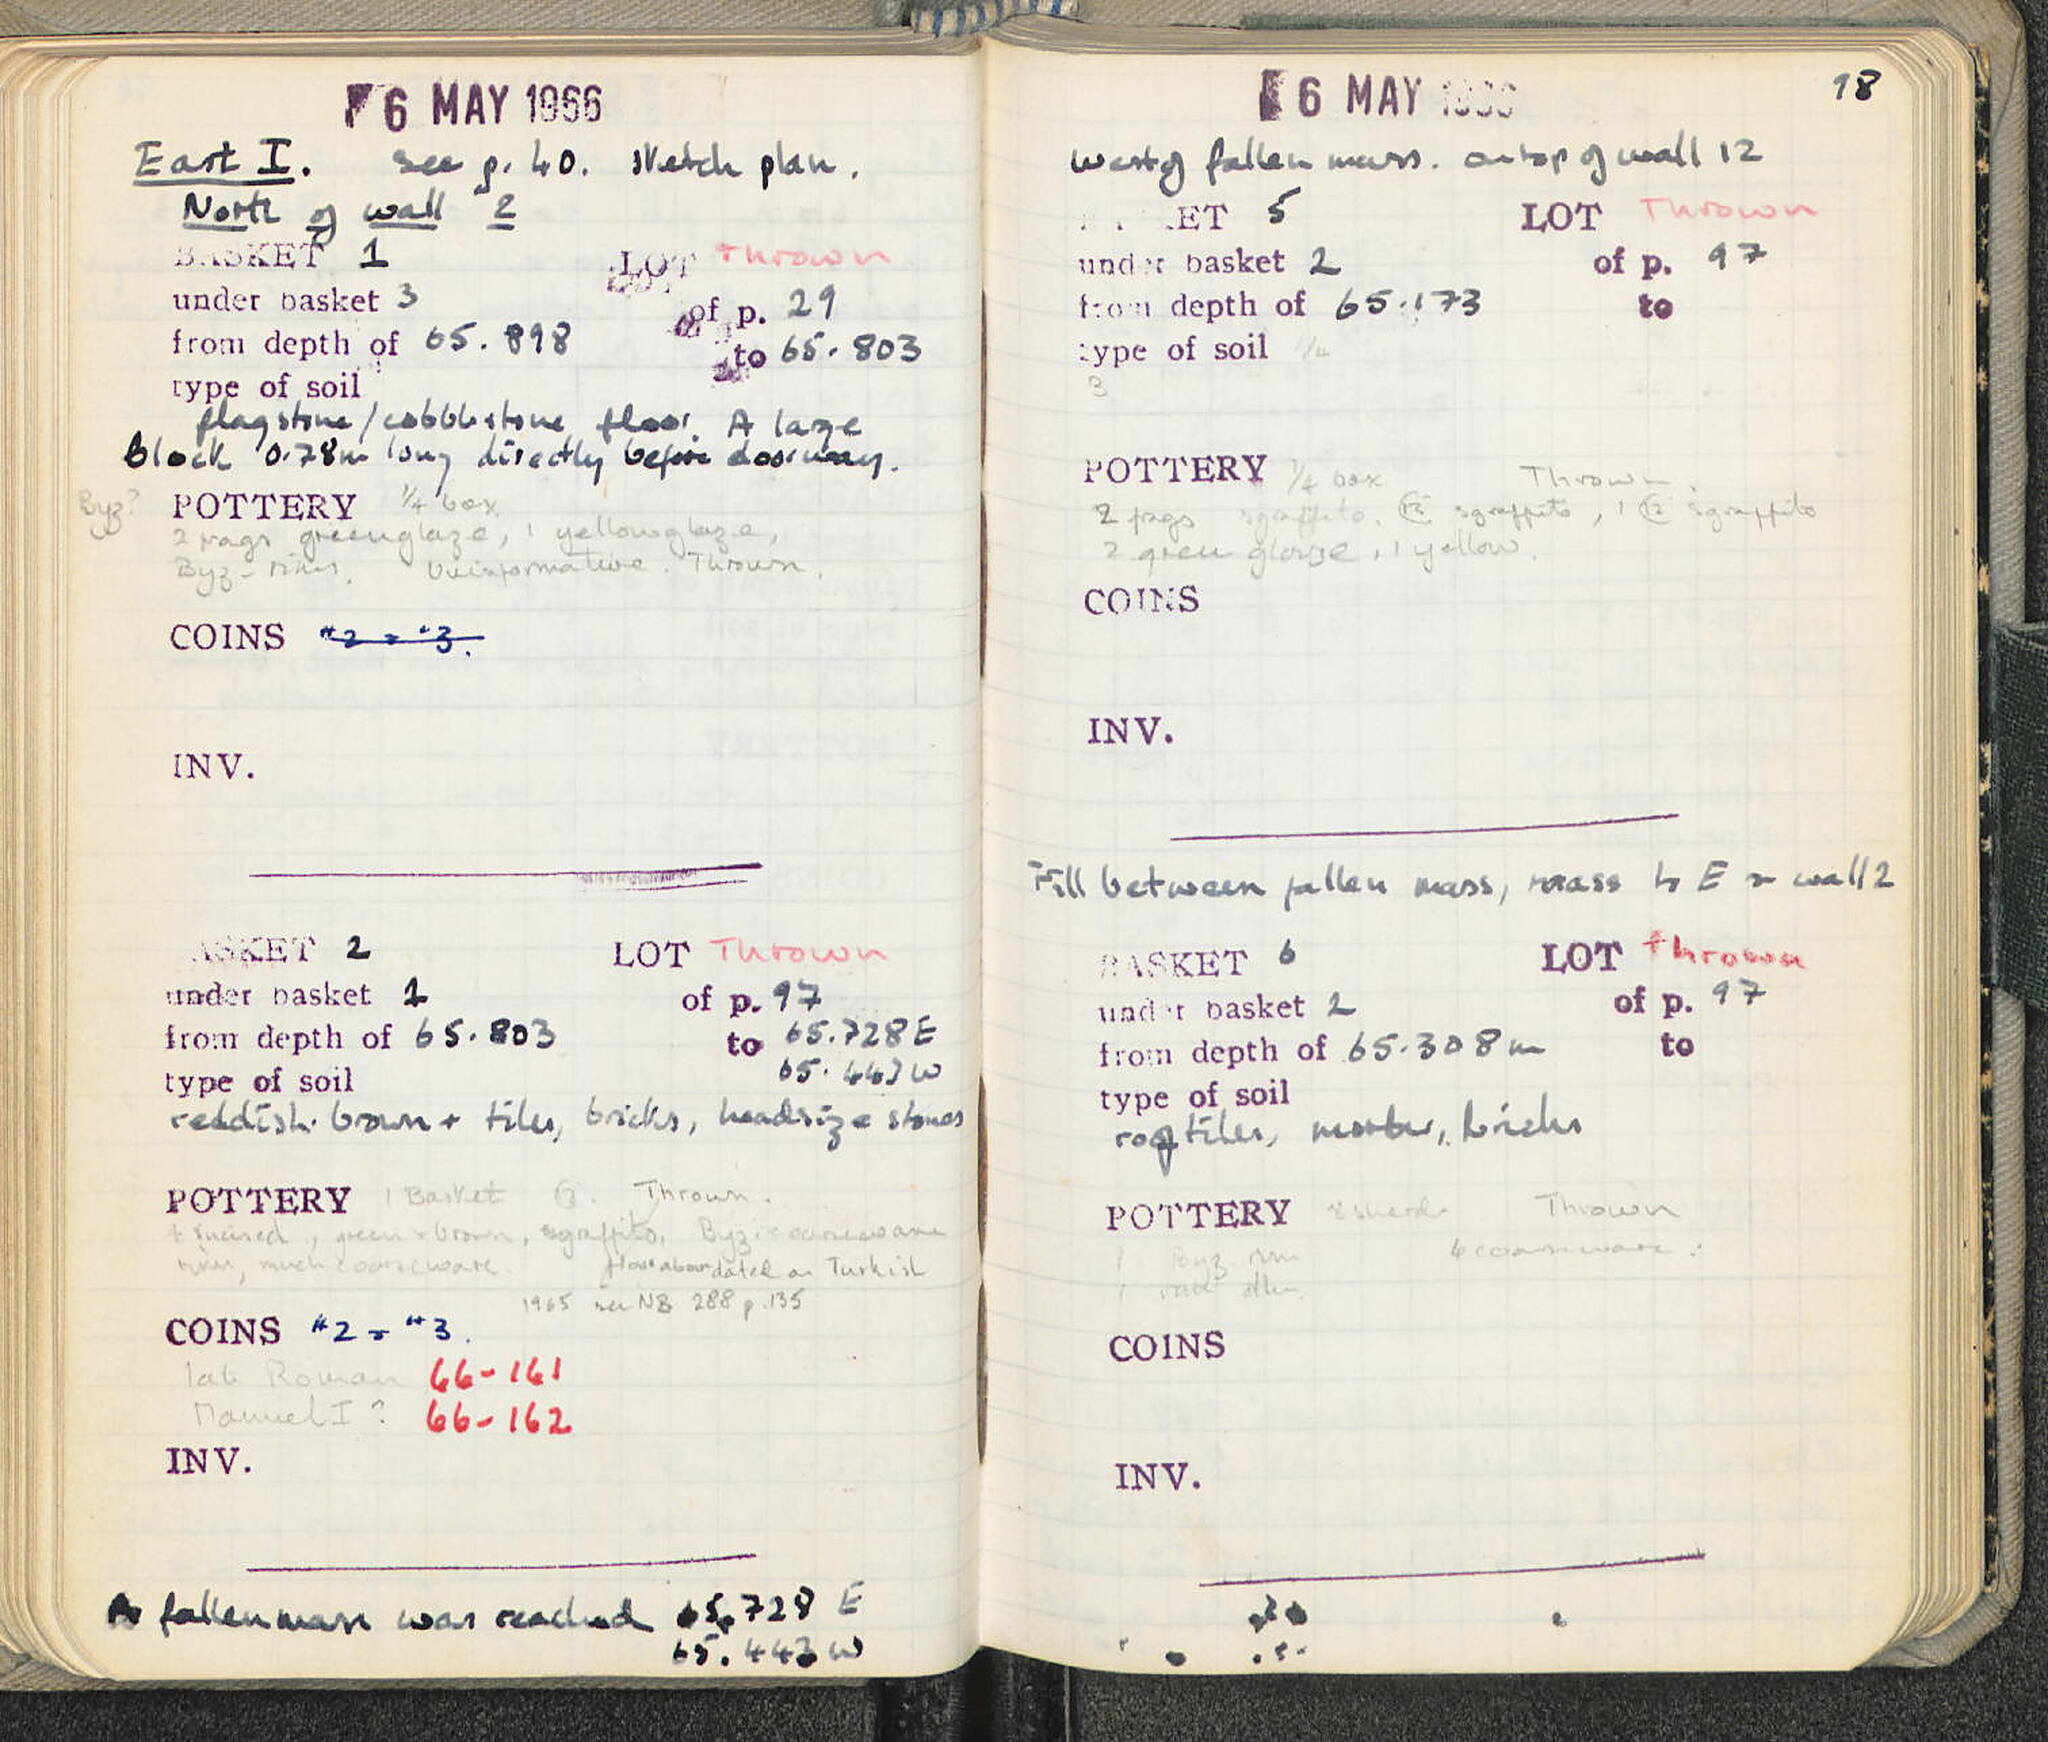 6 MAY 1966
East I. see p. 40. sketch plan.
North of wall 2
BASKET 1 LOT Thrown
under basket 3 of p. 29
from depth of 65.898 to 65.803
type of soil
flagstone/cobblestone floor. A large
block 0.78m long directly before doorway.
Byz? POTTERY 1/4 box
2 frags green glaze, 1 yellow glaze,
Byz - rims. Uninformative. Thrown.
COINS #2 - #3.
INV.
BASKET 2 LOT Thrown
under basket 1 of p. 97
from depth of 65.803 to 65.728 E
type of soil 65.443 W
reddish brown + tiles, bricks, headsize stones
POTTERY 1 Basket Thrown.
incised, green + brown, sgraffito, Byz. coarseware
rims, much coarseware. floor above dated as Turkish
1965 see NB 288 p. 135
COINS #2 - #3.
late Roman 66-161
Manuel I? 66-162
INV.
A fallen mass was reached 65.728 E
65.443 W
6 MAY 1966 98
West of fallen mass. on top of wall 12
BASKET 5 LOT Thrown
under basket 2 of p. 97
from depth of 65.173 to
type of soil
3
POTTERY 1/4 box Thrown.
2 frags sgraffito, sgraffito, 1 sgraffito
2 green glaze, 1 yellow.
COINS
INV.
Fill between fallen mass, mass to E + wall 2
BASKET 6 LOT thrown
under basket 2 of p. 97
from depth of 65.308m to
type of soil
rooftiles, mortar, bricks
POTTERY 8 sherds Thrown
1 Byz rim 6 coarseware.
1
COINS
INV.